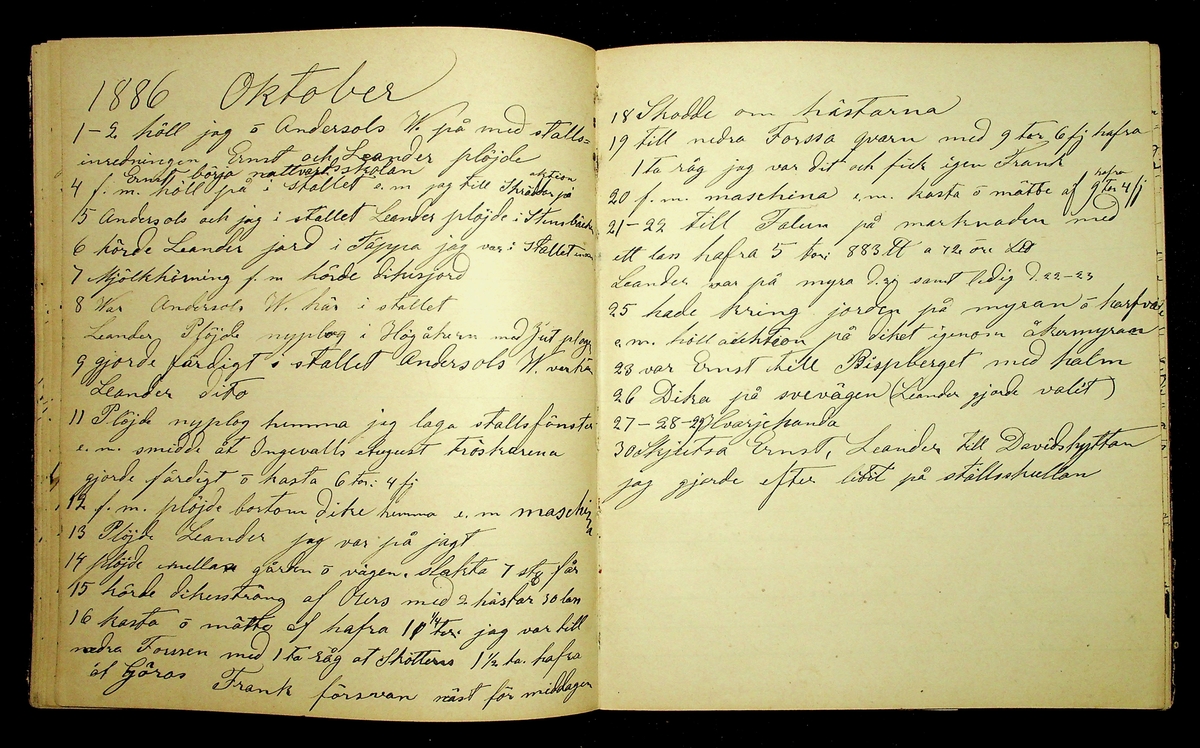 1886 Oktober
1-2 höll jag ö Andersols W. på med stalls=
inredningen Ernst och Leander plöjde
Ernst börja nattvardsskolan
4 f. m. höll på i stallet e. m jag till Skräddar på aktion
5 Andersols och jag i stallet Leander plöjde i Stensbäcken
6 körde Leander jord i Täppa jag var i Stallet
7 Mjölkkörning f. m körde dikesjord
8 War Andersols W. här i stallet
Leander Plöjde nyplog i Högåkern med
9 gjorde färdigt i stallet Andersols W. var här
Leander dito
11 Plöjde nyplog hemma jag laga stallsfönster
e. m. smidde åt Ingevalls August tröskarena
gjorde färdigt ö kasta 6 tor: 4 fj
12 f. m. plöjde bortom dike hemma e. m maschina
13 Plöjde Leander jag var på jagt
14 plöjde mellan gården ö vägen. slakta 7 stÿ får
15 körde dikessträng af Olers med 2 hästar 30 lass
16 kasta ö mätte af hafra 10 1/4 tor: jag var till
nedra Forssen med 1 ta råg at Skötters 1 1/2 ta. hafra
åt Göras Frank försvan näst för middagen
18 Skodde om hästarna
19 till nedra Forssa qvarn med 9 tor 6 fj hafra
1 ta råg jag var dit och fick igen Frank
20 f. m. maschina e. m. kasta ö mätte af hafra 9 tor 4 fj
21-22 till Falun på marknaden med
ett lass hafra 5 tor: 883 ℔ a 72 öre L℔
Leander var på myra d. 21 samt ledig d. 22-23
25 hade kring jorden på myran ö harfva
e. m. höll auktion på diket igenom åkermyran
23 var Ernst till Bispberget med halm
26 Dika på svevägen (Leander gjorde valit)
27-28-29
30 Skjutsa Ernst, Leander till Davidshyttan
jag gjorde efter litit på stallsskullan